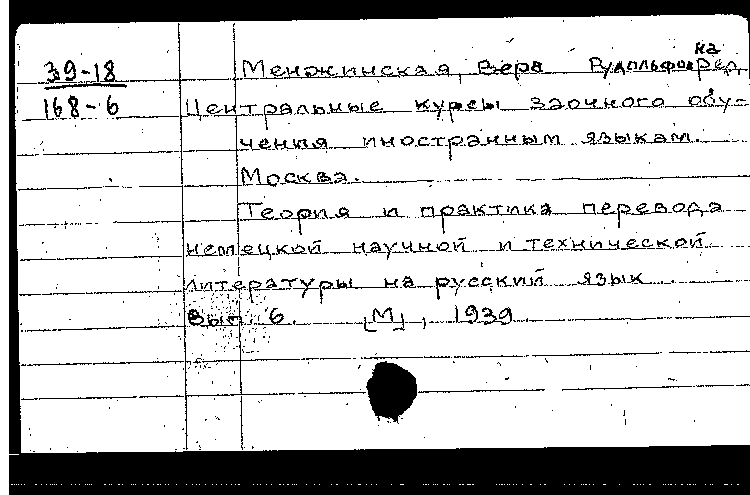 39-18
168-6
на
Менжинская, Вера Рудольфов ред.
Центральные курсы заочного обу-
чения иностранным языкам.
Москва.
Теория и практика перевода
немецкой научной и технической
литературы на русский язык
Вып. 6. [М], 1939.